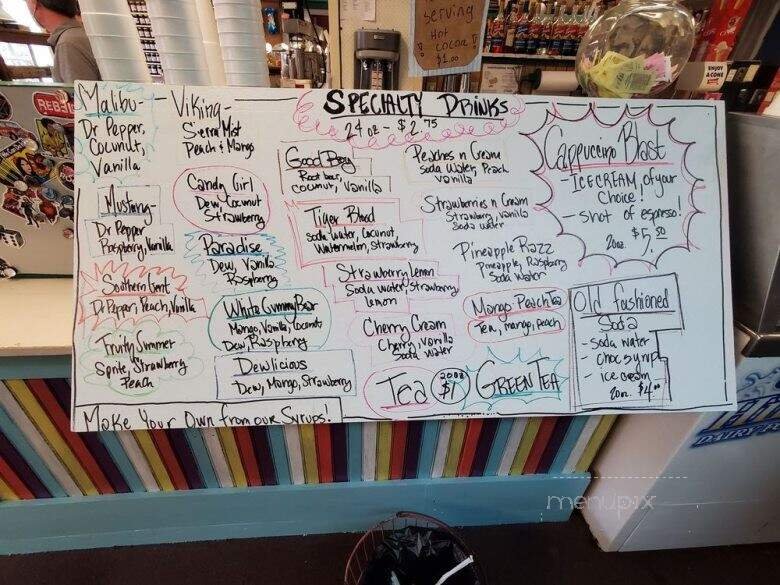 Serving
Hot
Cocoa
$1.00
ENJOY
A CONE
SPECIALTY DRINKS
24 oz - $2.75
Malibu-
Dr Pepper,
Coconut,
Vanilla
Viking-
Sierra Mist
Peach & Mango
Mustang-
Dr Pepper
Raspberry, Vanilla
Candy Girl
Dew, Coconut
Strawberry
Southern Gent
Dr Pepper, Peach, Vanilla
Paradise
Dew, Vanilla
Raspberry
Fruity Summer
Sprite, Strawberry
Peach
White Gummy Bear
Mango, Vanilla, Coconut
Dew, Raspberry
Dewlicious
Dew, Mango, Strawberry
Make Your Own from our Syrups!
Good Boy
Root beer,
coconut, Vanilla
Tiger Blood
Soda water, Coconut,
Watermelon, Strawberry
Strawberry Lemon
Soda water, Strawberry
Lemon
Cherry Cream
Cherry, Vanilla
Soda water
Peaches n Cream
Soda Water, Peach
Vanilla
Strawberries n Cream
Strawberry, Vanilla
Soda water
Pineapple Razz
Pineapple, Raspberry
Soda Water
Mango Peach Tea
Tea, mango, peach
Tea
20oz
$1
GREEN TEA
Cappuccino Blast
- ICE CREAM of your
Choice!
- Shot of espresso!
20oz. $5.50
Old fashioned
Soda
- Soda water
- Choc syrup
- ice cream
20oz. $4.00
DAIRY
menupix